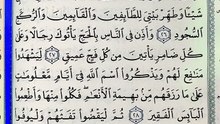 شَيْـًٔا وَطَهِّرْ بَيْتِىَ لِلطَّآئِفِينَ وَٱلْقَآئِمِينَ وَٱلرُّكَّعِ
ٱلسُّجُودِ ٢٦ وَأَذِّن فِى ٱلنَّاسِ بِٱلْحَجِّ يَأْتُوكَ رِجَالًا وَعَلَىٰ
كُلِّ ضَامِرٍ يَأْتِينَ مِن كُلِّ فَجٍّ عَمِيقٍ ٢٧ لِّيَشْهَدُوا۟
مَنَـٰفِعَ لَهُمْ وَيَذْكُرُوا۟ ٱسْمَ ٱللَّهِ فِىٓ أَيَّامٍ مَّعْلُومَـٰتٍ
عَلَىٰ مَا رَزَقَهُم مِّنۢ بَهِيمَةِ ٱلْأَنْعَـٰمِ فَكُلُوا۟ مِنْهَا وَأَطْعِمُوا۟
ٱلْفَقِيرَ ٢٨ ثُمَّ لْيَقْضُوا۟ تَفَثَهُمْ وَلْيُوفُوا۟